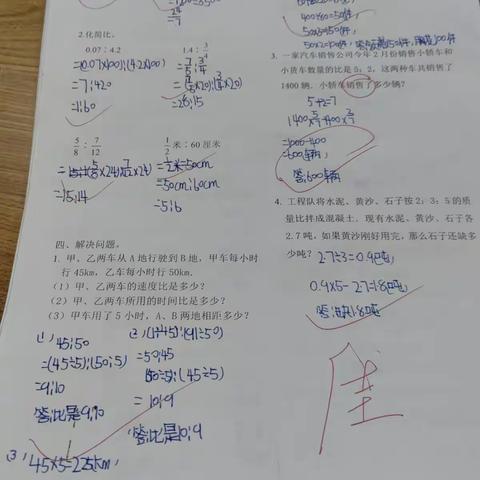 2.化简比。
0.07 : 4.2
=(0.07×100):(4.2×100)
=7:420
=1:60
1.4 :
=28:15
5/8 : 7/12
=15:14
1/2米 : 60厘米
=50cm:60cm
=5:6
四、解决问题。
1. 甲、乙两车从A地行驶到B地，甲车每小时
行45km，乙车每小时行50km.
(1) 甲、乙两车的速度比是多少？
(2) 甲、乙两车所用的时间比是多少？
(3) 甲车用了5小时，A、B两地相距多少？
(1) 45:50
=(45÷5):(50÷5)
=9:10
答:比是9:10
(2) (1÷45):(1÷50)
=50:45
(50÷5):(45÷5)
=10:9
答:比是10:9
(3) 45×5=225km
3. 一家汽车销售公司今年2月份销售小轿车和
小货车数量的比是5：2，这两种车共销售了
1400辆．小轿车销售了多少辆？
5+2=7
=1000-400
=600辆
答:600辆
4. 工程队将水泥、黄沙、石子按2：3：5的质
量比拌成混凝土．现有水泥、黄沙、石子各
2.7吨，如果黄沙刚好用完，那么石子还缺多
少吨？
2.7÷3=0.9吨
0.9×5-2.7=1.8吨
答:缺1.8吨